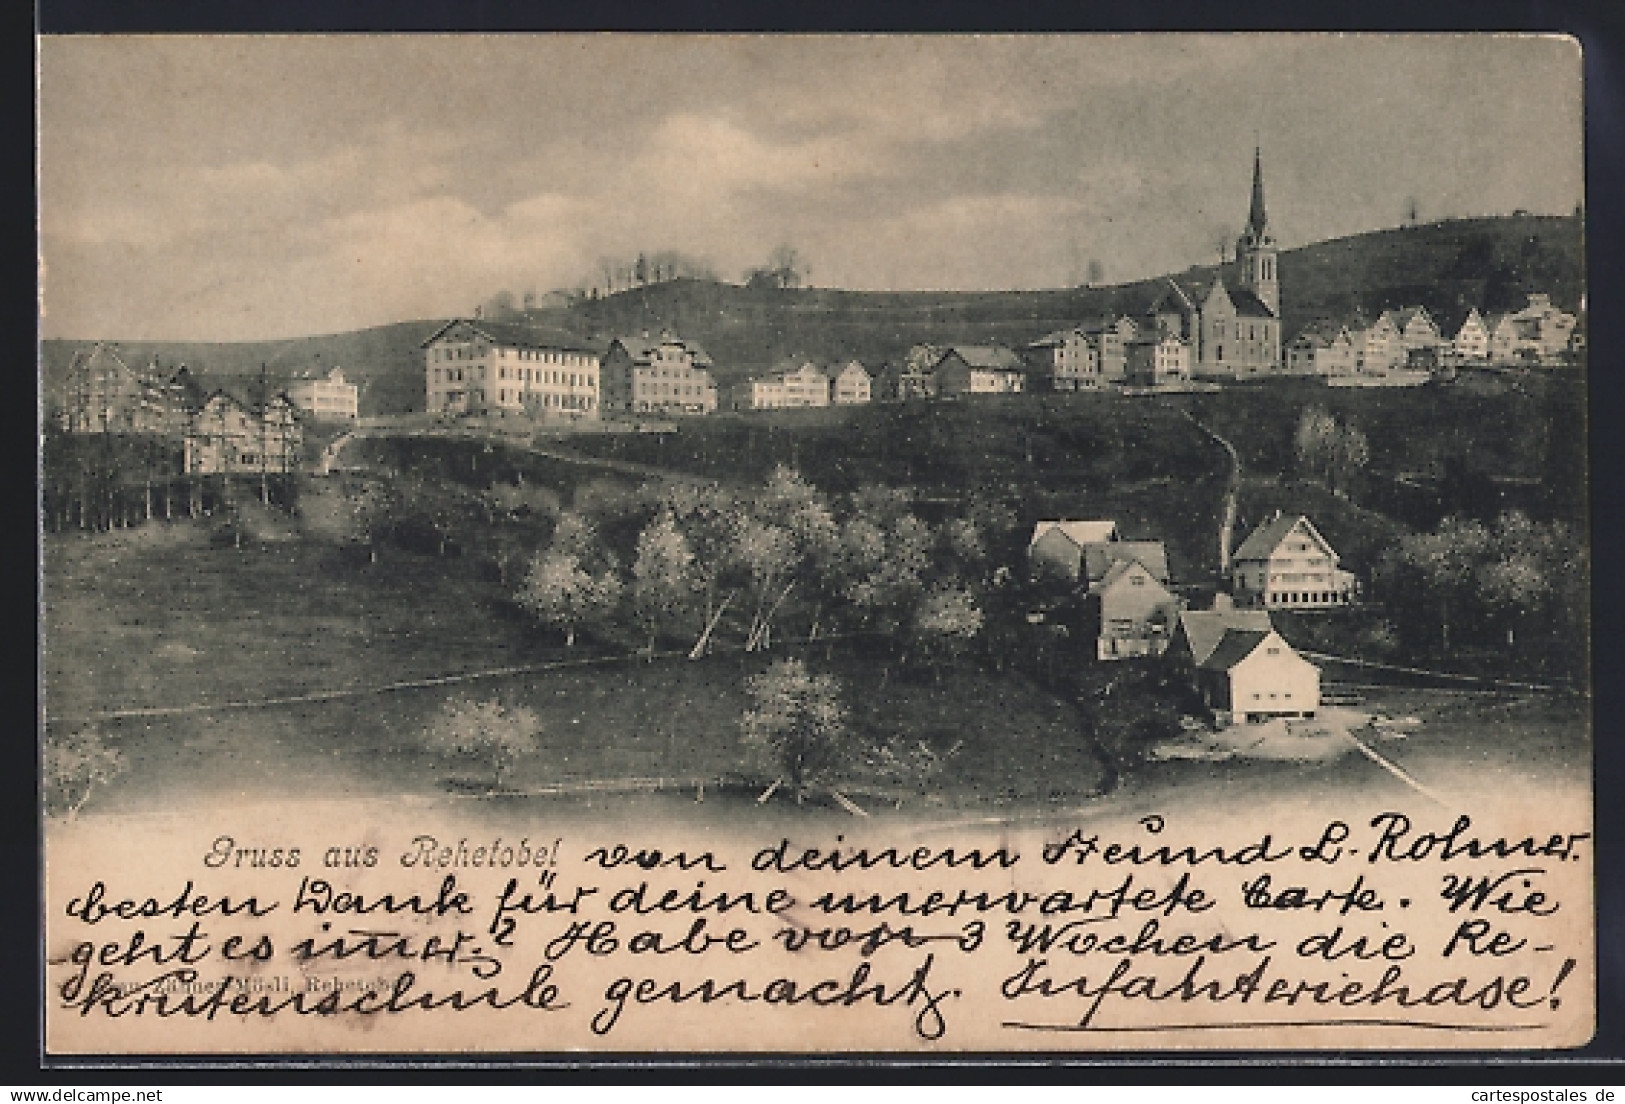 Gruss aus Rehetobel von deinem Freund L. Rohner.
besten Dank für deine unerwartete Carte. Wie
geht es immer? Habe vor 3 Wochen die Re-
krutenschule gemacht. Infanteriehase!
Zürner-Müsli, Rehetobel
cartespostales de